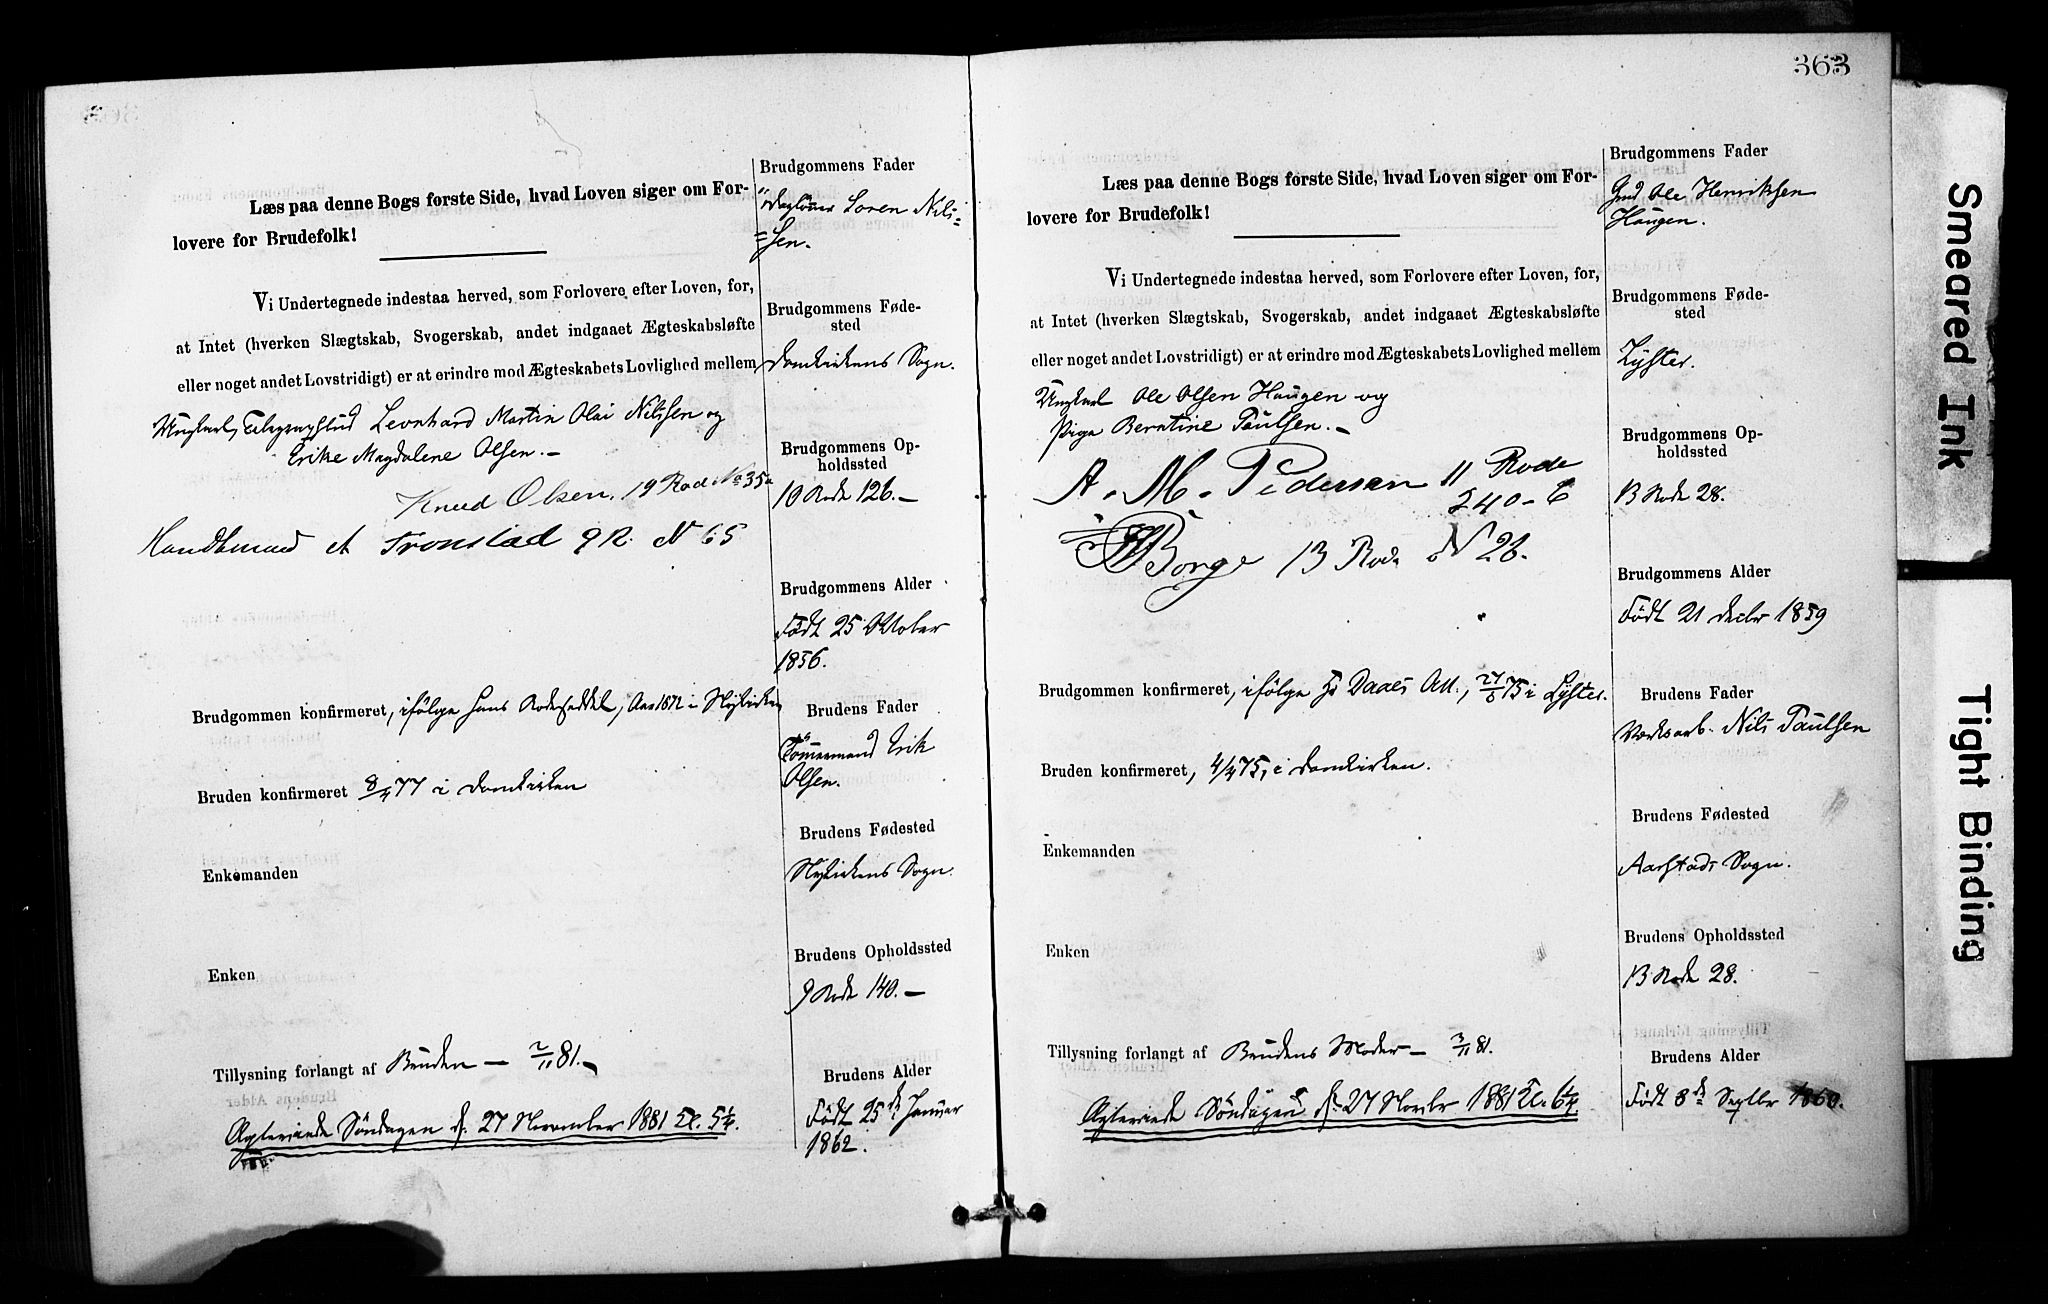 Læs paa denne Bogs første Side, hvad Loven siger om For-
lovere for Brudefolk!
Vi Undertegnede indestaa herved, som Forlovere efter Loven, for,
at Intet (hverken Slægtskab, Svogerskab, andet indgaaet Ægteskabsløfte
eller noget andet Lovstridigt) er at erindre mod Ægteskabets Lovlighed mellem
Ungkarl, Leonhard Martin Olai Nilssen og
Erike Magdalene Olsen. —
Knud Olsen, 19 Rode No 35a
Handelsmand A Tronstad 9 R. N 65
Brudgommen konfirmeret, ifølge hans Rodeseddel, Aar 1872 i Nykirken
Bruden konfirmeret 8/4 77 i Domkirken
Enkemanden
Enken
Tillysning forlangt af Bruden — 2/11 81. —
Søndagen d. 27 November 1881 Kl. 5¼.
Brudgommens Fader
Dagløner Soren Nils-
=sen.
Brudgommens Føde-
sted
Domkirkens Sogn.
Brudgommens Op-
holdssted
10 Rode 126. —
Brudgommens Alder
Født 25 Oktober
1856.
Brudens Fader
Tømmermand Erik
Olsen.
Brudens Fødested
Nykirkens Sogn.
Brudens Opholdssted
9 Rode 140. —
Brudens Alder
Født 25de Januar
1862.
363
Læs paa denne Bogs første Side, hvad Loven siger om For-
lovere for Brudefolk!
Vi Undertegnede indestaa herved, som Forlovere efter Loven, for,
at Intet (hverken Slægtskab, Svogerskab, andet indgaaet Ægteskabsløfte
eller noget andet Lovstridigt) er at erindre mod Ægteskabets Lovlighed mellem
Ungkarl Ole Olsen Haugen og
Pige Berntine Paulsen. —
A. M. Pedersen 11 Rode
240-6
Borge 13 Rode N 28.
Brudgommen konfirmeret, ifølge Daaes Att., 27/6 75 i Lyster.
Bruden konfirmeret, 4/4 75, i Domkirken.
Enkemanden
Enken
Tillysning forlangt af Brudens Moder — 3/11 81.
Søndagen d. 27 Novbr 1881 Kl. 6¼
Brudgommens Fader
Gmd Ole Henriksen
Haugen.
Brudgommens Føde-
sted
Lyster.
Brudgommens Op-
holdssted
13 Rode 28.
Brudgommens Alder
Født 21 Decbr 1859
Brudens Fader
Værksarb. Nils Paulsen
Brudens Fødested
Aarstads Sogn.
Brudens Opholdssted
13 Rode 28.
Brudens Alder
Født 8de Septbr 1860.
Smeared Ink
Tight Binding